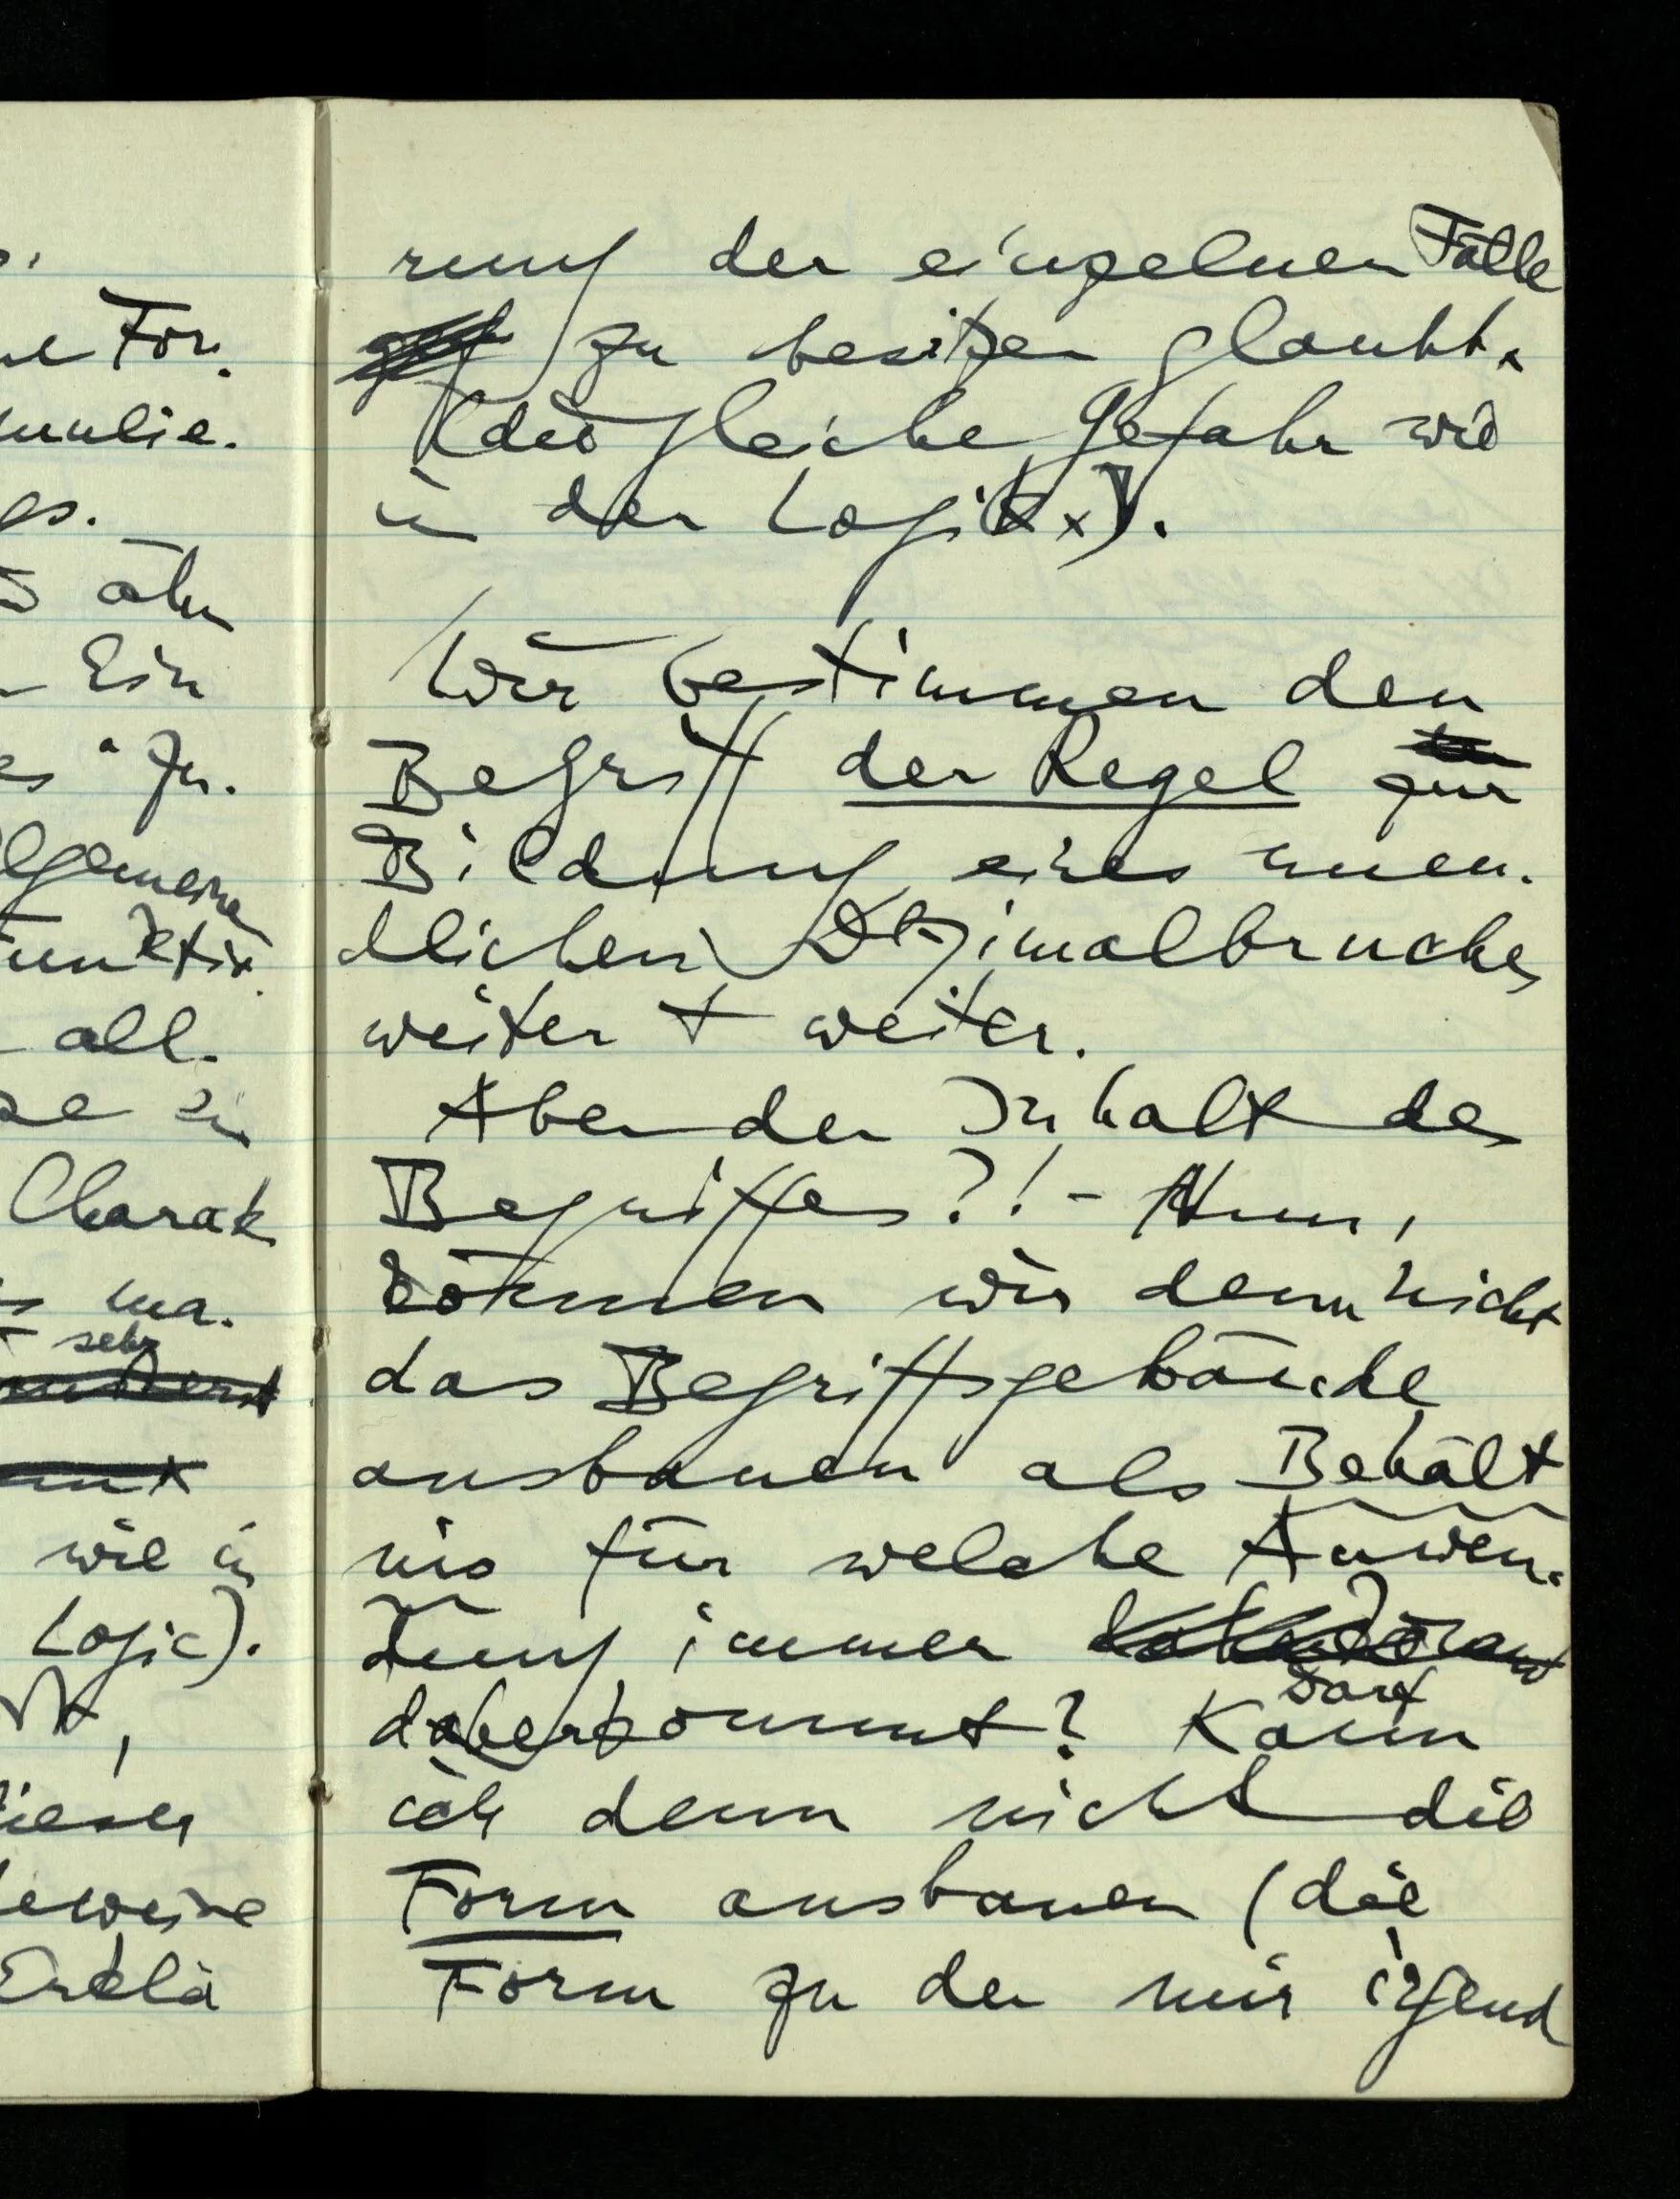 e For.
mulie.
es.
ähn
Ein
es "zu.
llgemeine
Funktio.
all.
Charak
ma.
sehr
wie in
Logic).
dieser
beweise
Erklä
rung der einzelnen Fälle
zu besitzen glaubt.
(die gleiche Gefahr wie
in der Logik).
Wir bestimmen den
Begriff der Regel zur
Bildung eines unen-
dlichen Dezimalbruches
weiter + weiter.
Aber der Inhalt des
Begriffes?! – Nun,
können wir denn nicht
das Begriffsgebäude
ausbauen als Behält
nis für welche Anwen-
dung immer
daherkommt? Darf Kann
ich denn nicht die
Form ausbauen (die
Form zu der mir irgend